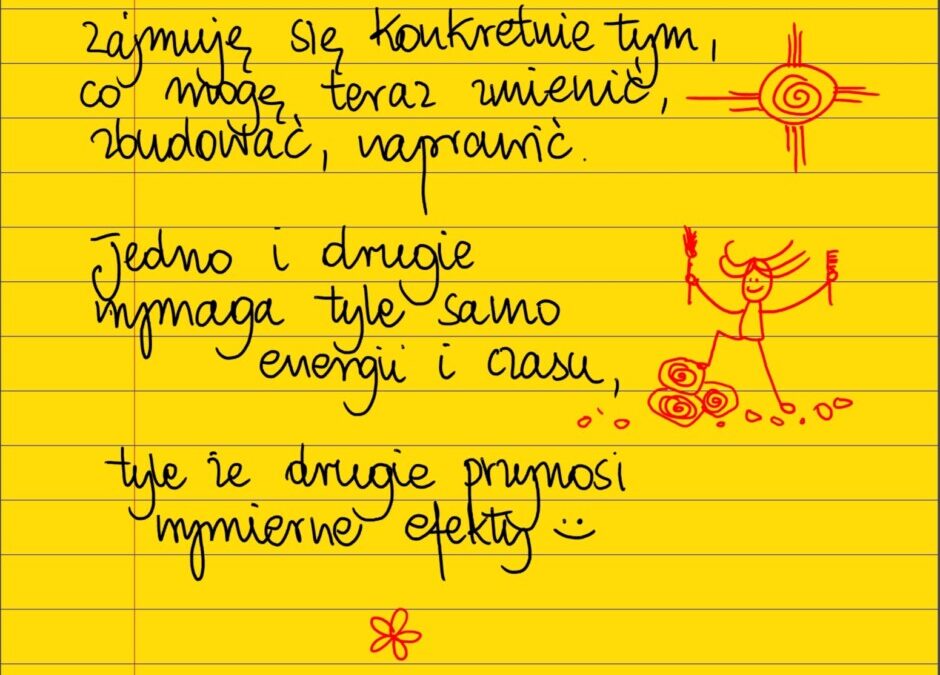 zajmuję się konkretnie tym,
co mogę teraz zmienić,
zbudować, naprawić.
Jedno i drugie
wymaga tyle samo
energii i czasu,
tyle że drugie przynosi
wymierne efekty :)